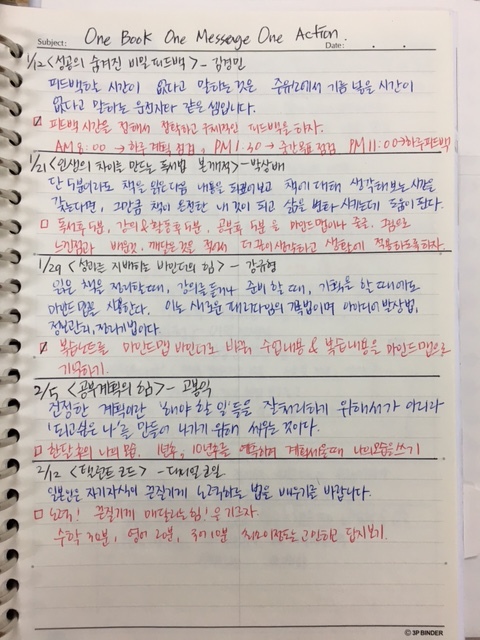 Subject: One Book One Message One Action. Date: . .
1/12 <성공의 숨겨진 비밀 피드백> - 김경민
피드백할 시간이 없다고 말하는 것은 주유소에서 기름 넣을 시간이
없다고 말하는 운전자와 같은 셈입니다.
피드백 시간을 정해서 정확하고 구체적인 피드백을 하자.
AM 8:00 → 하루 계획 점검, PM 1:30 → 중간목표 점검 PM 11:00 → 하루 피드백
1/21 <인생의 차이를 만드는 독서법 본깨적> - 박상배
단 5분이라도 책을 읽은 다음 내용을 되짚어보고 책에 대해 생각해보는 시간을
갖는다면, 그만큼 책이 온전한 내 것이 되고 삶을 변화시키는데 도움이 된다.
독서후 5분, 강의&활동후 5분, 공부후 5분을 마인드맵이나 줄글, 그림으로
느낀점과 배운것, 깨닫은 것을 적어서 더 깊이 생각하고 생활에 적용하도록 하자.
1/29 <성과를 지배하는 바인더의 힘> - 강규형
읽은 책을 정리할 때, 강의를 듣거나 준비할 때, 기획을 할 때에도
마인드맵을 사용한다. 이는 새로운 패러다임의 학습법이며 아이디어 발상법,
정보관리, 정리기법이다.
복습노트를 마인드맵 바인더로 바꿔, 수업내용 & 복습내용을 마인드맵으로
기록하기.
2/5 <공부계획의 힘> - 고봉익
진정한 계획이란 '해야 할 일'들을 잘 처리하기 위해서가 아니라
'되고 싶은 나'를 만들어 나가기 위해 세우는 것이다.
한달 후의 나의 모습, 1년후, 10년후를 계획세울때 나의 모습을 쓰기
2/12 <탤런트 코드> - 대니얼 코일
일본인은 자기 자식이 끈질기게 노력하는 법을 배우기를 바랍니다.
노력! 끈질기게 매달리는 힘!을 기르자.
수학 30분, 영어 20분, 국어 10분 최소 이정도는 고민하고 답지보기.
© 3P BINDER